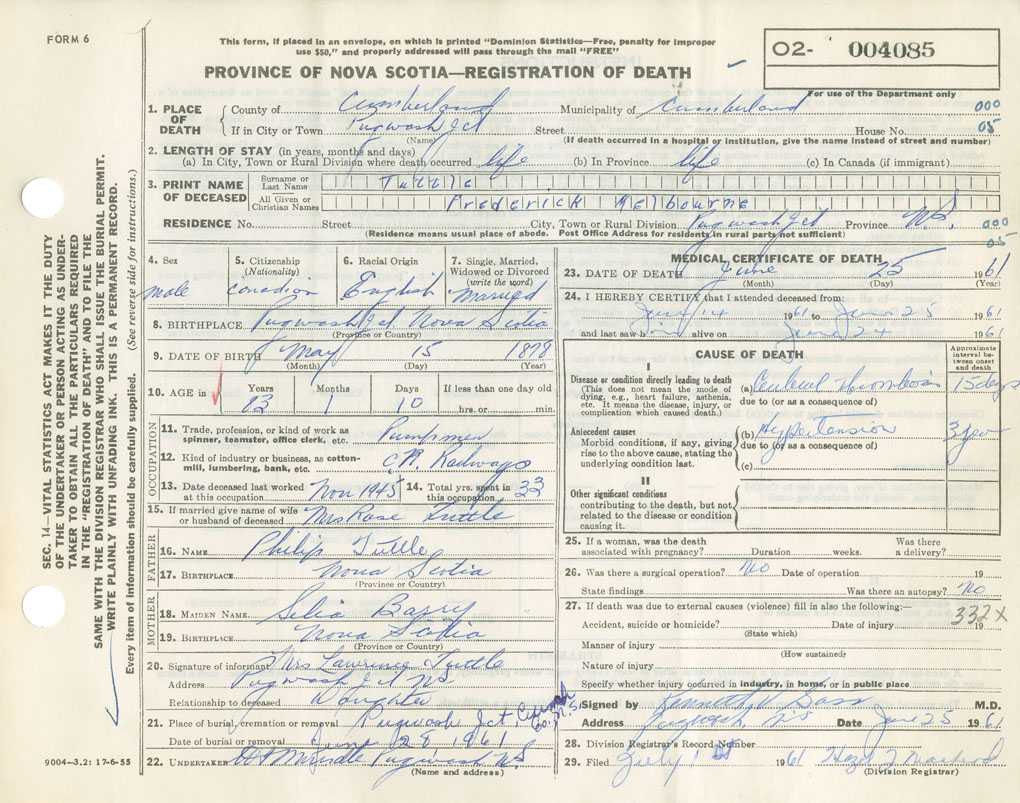 FORM 6
This form, if placed in an envelope, on which is printed "Dominion Statistics—Free, penalty for improper
use $50," and properly addressed will pass through the mail "FREE"
PROVINCE OF NOVA SCOTIA—REGISTRATION OF DEATH
02- 004085
For use of the Department only
1. PLACE OF DEATH County of Cumberland Municipality of Cumberland 000
If in City or Town Pugwash Jct Street House No. 05
(Name) (If death occurred in a hospital or institution, give the name instead of street and number)
2. LENGTH OF STAY (in years, months and days)
(a) In City, Town or Rural Division where death occurred life (b) In Province life (c) In Canada (if immigrant)
3. PRINT NAME OF DECEASED
Surname or Last Name Tuttle
All Given or Christian Names Frederick Melbourne
RESIDENCE No. Street City, Town or Rural Division Pugwash Jct Province N.S. 000
(Residence means usual place of abode. Post Office Address for residents in rural parts not sufficient) 05
4. Sex male
5. Citizenship (Nationality) Canadian
6. Racial Origin English
7. Single, Married, Widowed or Divorced (write the word) Married
8. BIRTHPLACE Pugwash Jct Nova Scotia
(Province or Country)
9. DATE OF BIRTH May 15 1878
(Month) (Day) (Year)
10. AGE in Years 83 Months 1 Days 10 If less than one day old hrs. or min.
OCCUPATION
11. Trade, profession, or kind of work as spinner, teamster, office clerk, etc. Pumpmen
12. Kind of industry or business, as cotton-mill, lumbering, bank, etc. C.N. Railways
13. Date deceased last worked at this occupation Nov 1945 14. Total yrs. spent in this occupation 33
15. If married give name of wife or husband of deceased Mrs Rose Tuttle
FATHER
16. NAME Philip Tuttle
17. BIRTHPLACE Nova Scotia
(Province or Country)
MOTHER
18. MAIDEN NAME Selia Barry
19. BIRTHPLACE Nova Scotia
(Province or Country)
20. Signature of informant Mrs Lawrence Tuttle
Address Pugwash Jct NS
Relationship to deceased Daughter
21. Place of burial, cremation or removal Pugwash Jct Cumb Co. N.S.
Date of burial or removal June 28 1961
22. UNDERTAKER Pugwash NS
(Name and address)
9004—3.2: 17-6-55
MEDICAL CERTIFICATE OF DEATH
23. DATE OF DEATH June 25 1961
(Month) (Day) (Year)
24. I HEREBY CERTIFY that I attended deceased from:
June 14 1961 to June 25 1961
and last saw him alive on June 24 1961
CAUSE OF DEATH
Approximate interval between onset and death
I
Disease or condition directly leading to death
(This does not mean the mode of dying, e.g., heart failure, asthenia, etc. It means the disease, injury, or complication which caused death.)
(a) Cerebral Thrombosis 15 days
due to (or as a consequence of)
Antecedent causes
Morbid conditions, if any, giving rise to the above cause, stating the underlying condition last.
(b) Hypertension 3 year
due to (or as a consequence of)
(c)
II
Other significant conditions
contributing to the death, but not related to the disease or condition causing it.
25. If a woman, was the death associated with pregnancy? Duration weeks. Was there a delivery?
26. Was there a surgical operation? No Date of operation 19
State findings Was there an autopsy? No
27. If death was due to external causes (violence) fill in also the following:—
332 X
Accident, suicide or homicide? Date of injury 19
(State which)
Manner of injury
(How sustained)
Nature of injury
Specify whether injury occurred in industry, in home, or in public place
Signed by Kenneth V. M.D.
Address Pugwash NS Date June 25 1961
28. Division Registrar's Record Number
29. Filed July 1 1961 Hazel
(Division Registrar)
SEC. 14—VITAL STATISTICS ACT MAKES IT THE DUTY
OF THE UNDERTAKER OR PERSON ACTING AS UNDER-
TAKER TO OBTAIN ALL THE PARTICULARS REQUIRED
IN THE "REGISTRATION OF DEATH" AND TO FILE THE
SAME WITH THE DIVISION REGISTRAR WHO SHALL ISSUE THE BURIAL PERMIT.
WRITE PLAINLY WITH UNFADING INK. THIS IS A PERMANENT RECORD.
Every item of information should be carefully supplied. (See reverse side for instructions.)